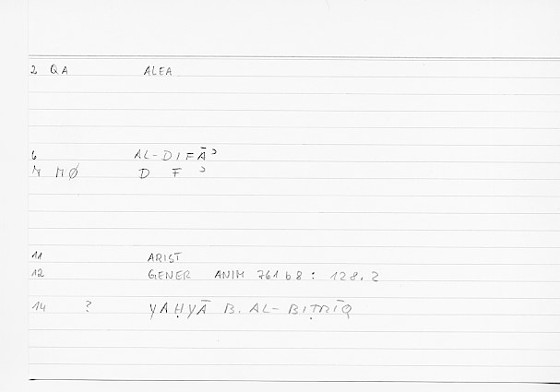 2 QA ALEA
6 AL-DIFĀʾ
M MØ D F ʾ
11 ARIST
12 GENER ANIM 761b8 : 128.2
14 ? YAḤYĀ B. AL-BIṬRĪQ